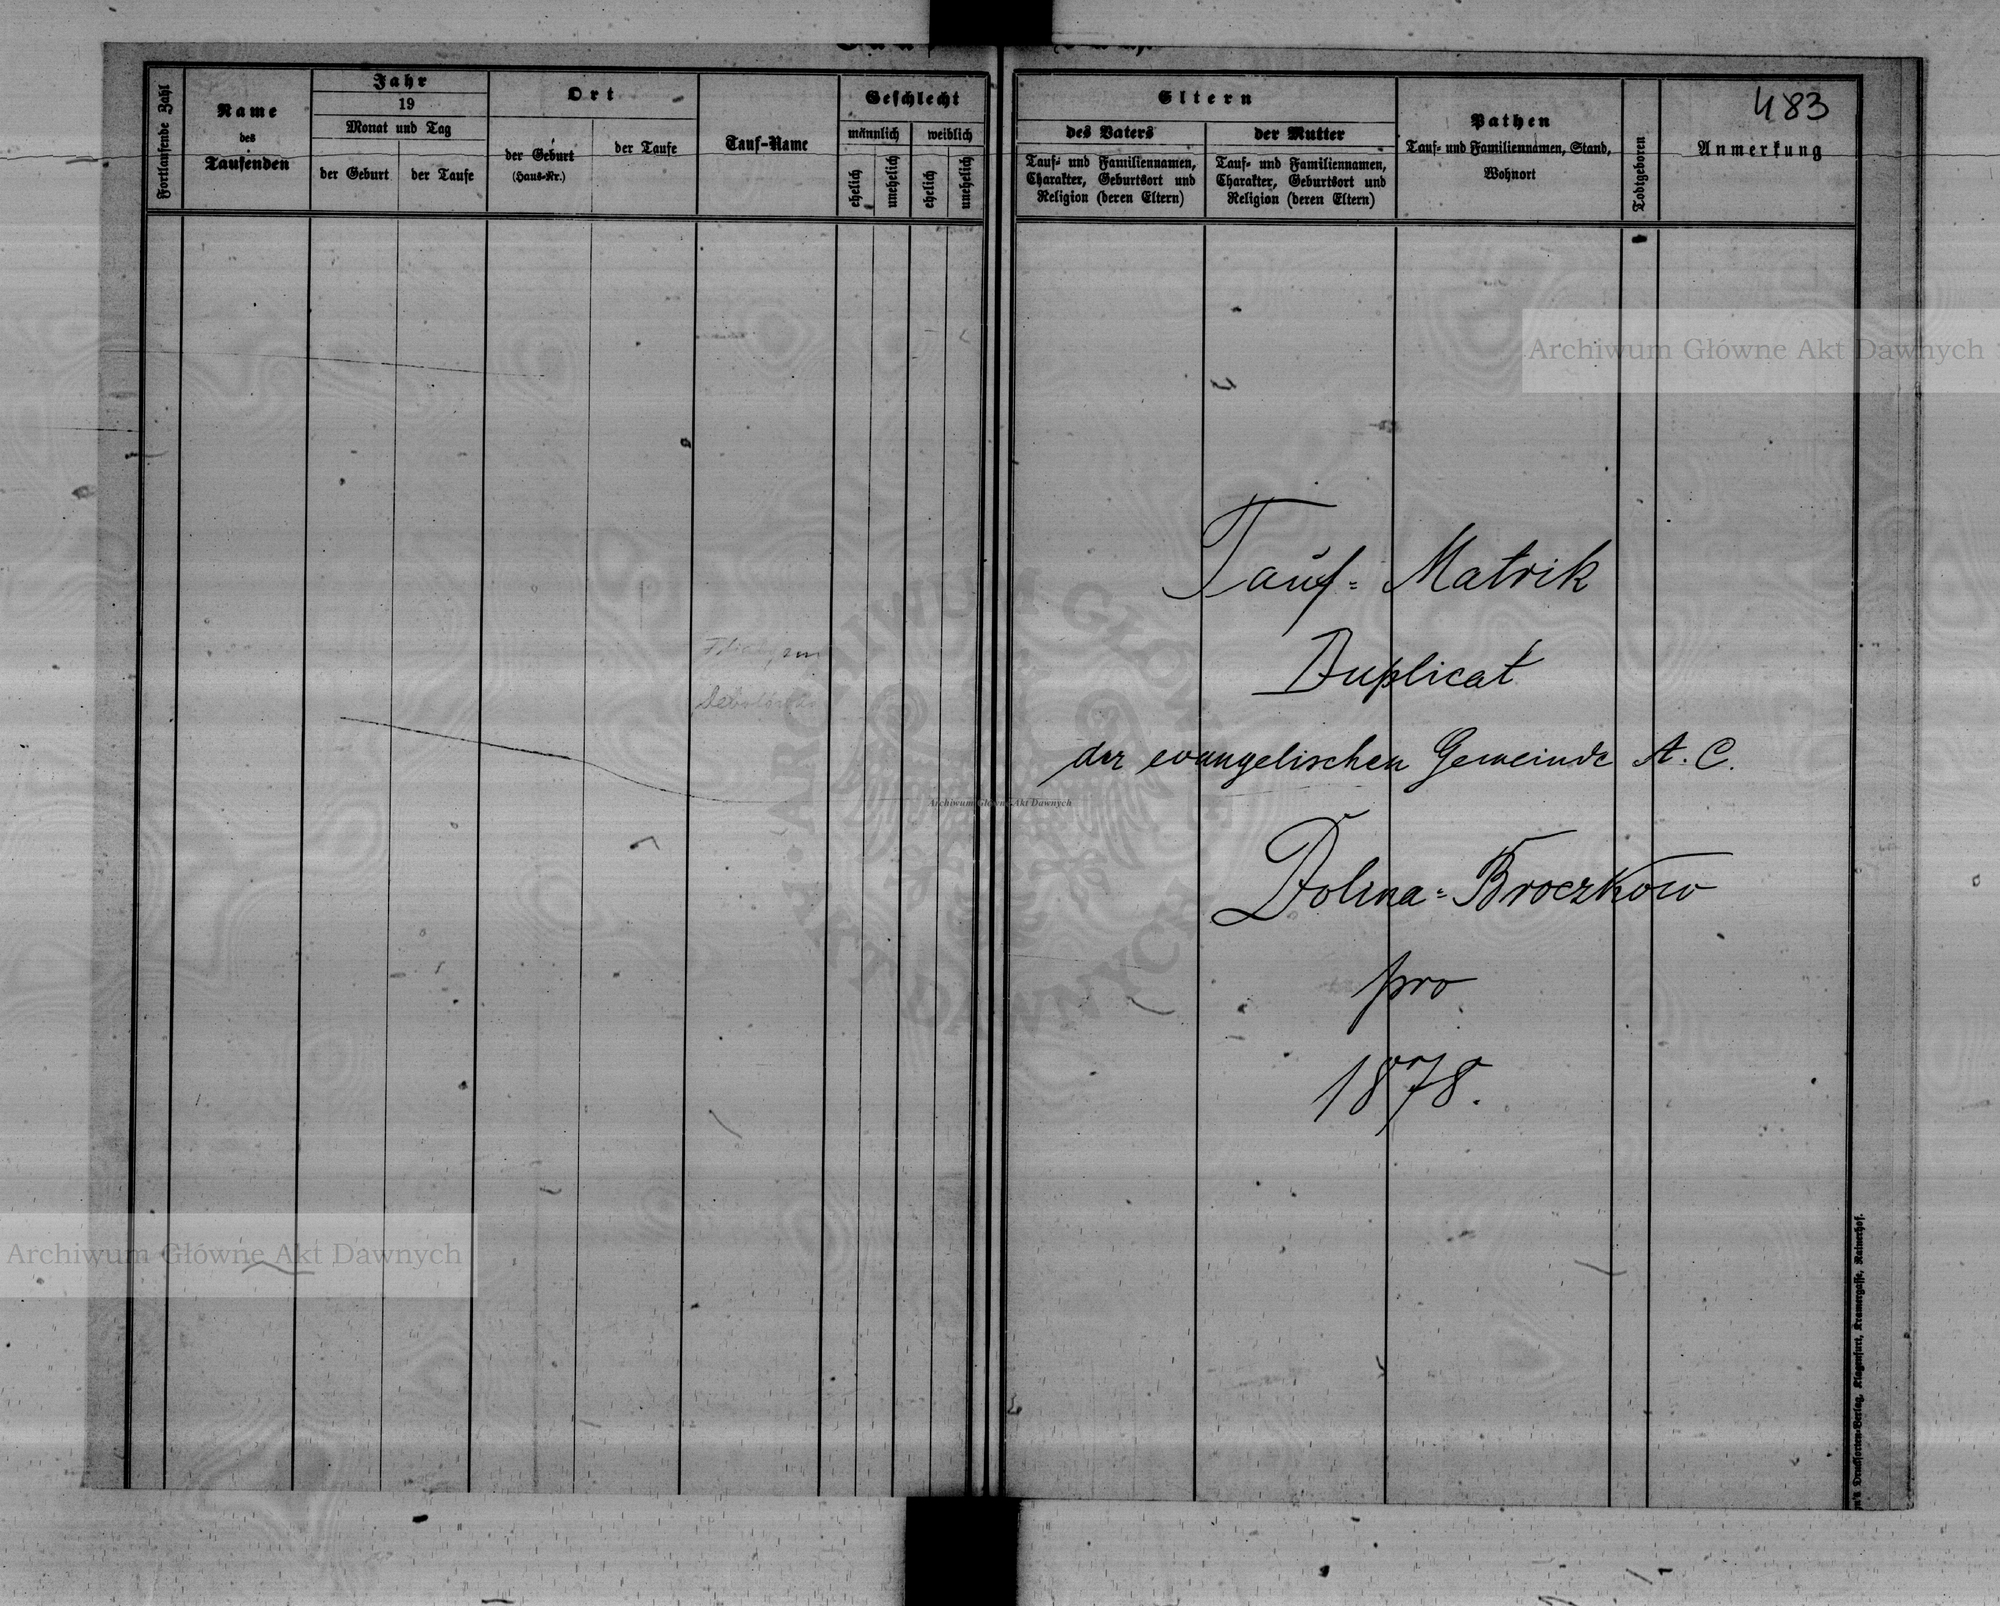 Fortlaufende Zahl
Name
des
Taufenden
Jahr
19
Monat und Tag
der Geburt
der Taufe
Ort
der Geburt
(Haus-Nr.)
der Taufe
Tauf-Name
Geschlecht
männlich
weiblich
ehelich
unehelich
ehelich
unehelich
Eltern
des Vaters
Tauf- und Familiennamen,
Charakter, Geburtsort und
Religion (deren Eltern)
der Mutter
Tauf- und Familiennamen,
Charakter, Geburtsort und
Religion (deren Eltern)
Pathen
Tauf- und Familiennamen, Stand,
Wohnort
Todtgeboren
483
Anmerkung
Tauf= Matrik
Duplicat
der evangelischen Gemeinde A. C.
Dolina=Broczkow
pro
1878.
Drucksorten-Verlag, Klagenfurt, Kramergasse, Rainerhof.
Archiwum Główne Akt Dawnych
Archiwum Główne Akt Dawnych
Archiwum Główne Akt Dawnych
ARCHIWUM GŁÓWNE AKT DAWNYCH